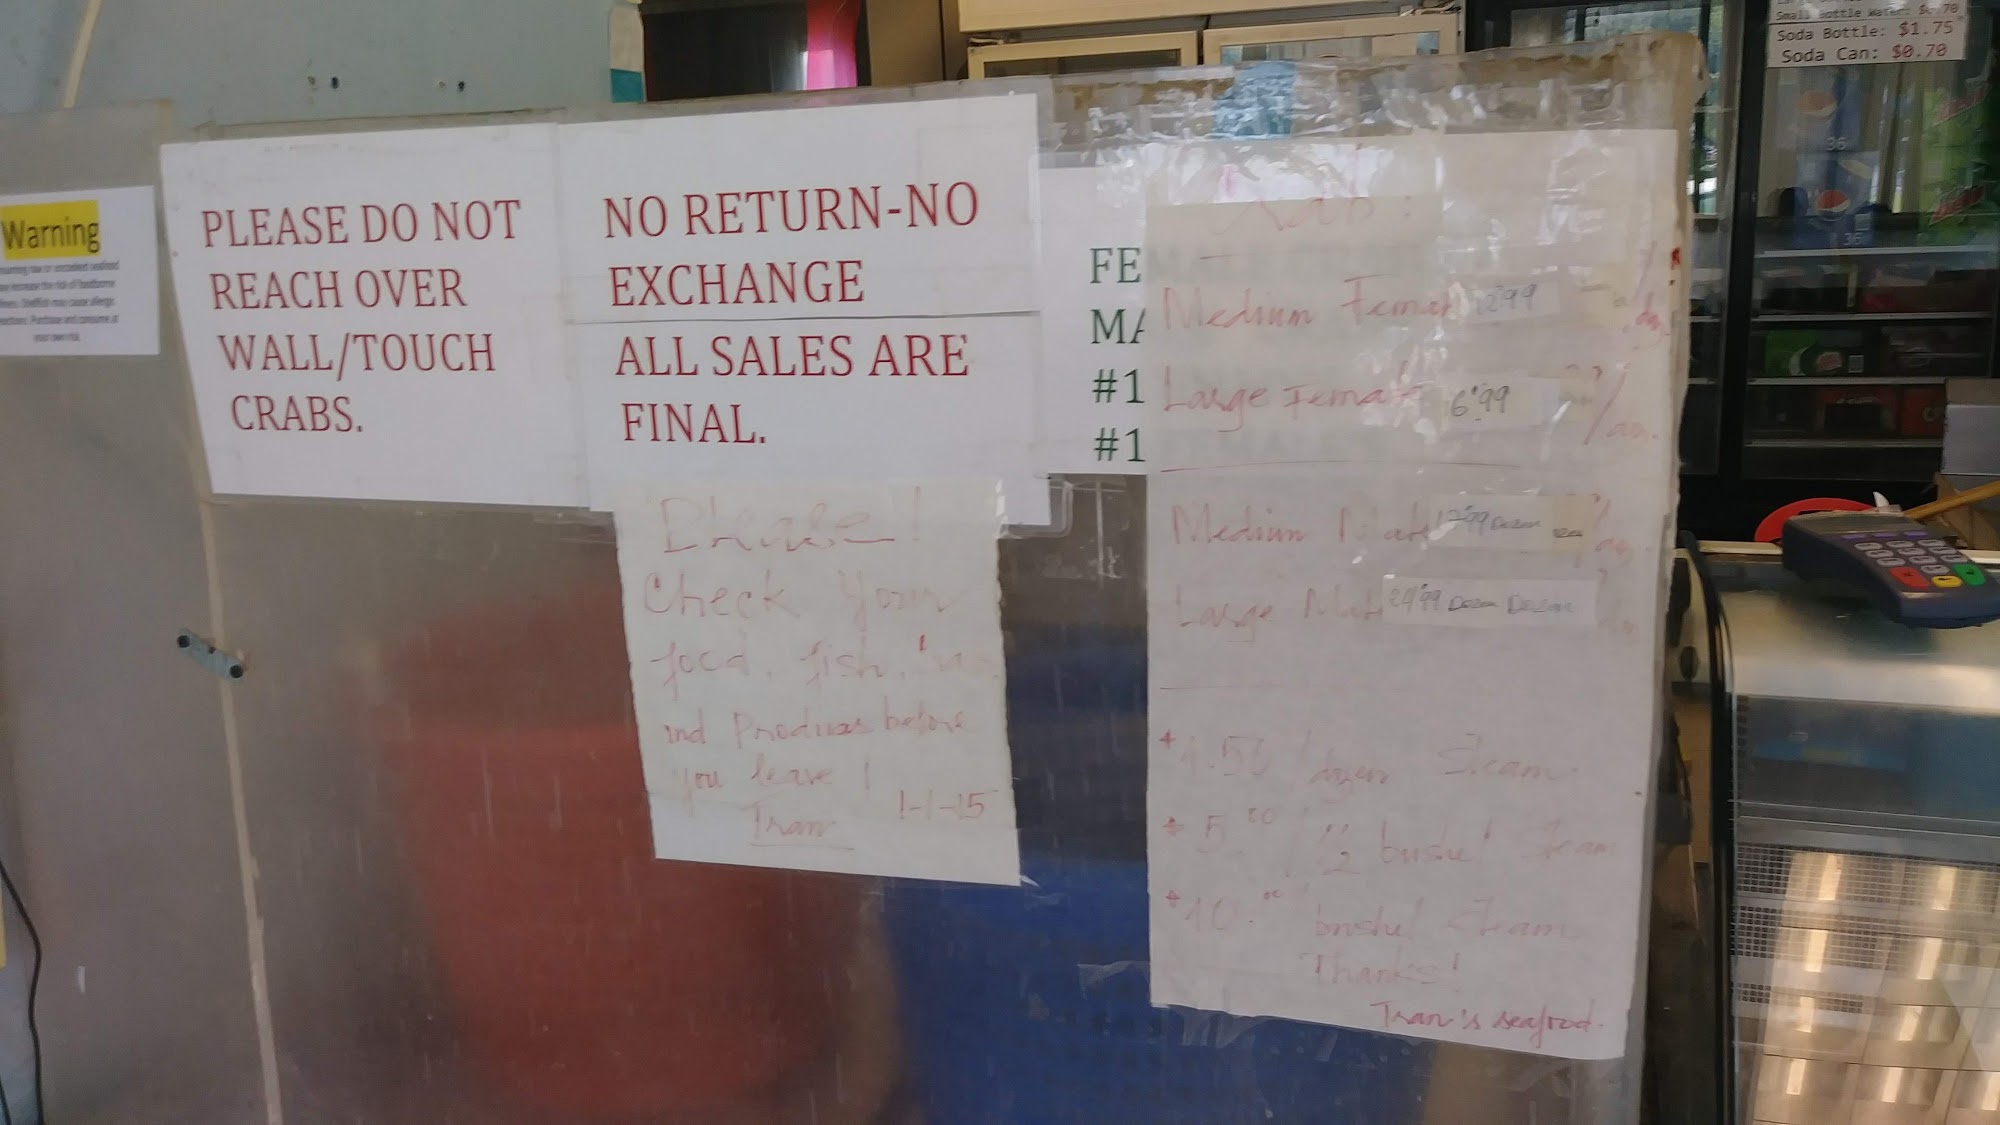 Small Bottle Water:
Soda Bottle: $1.75
Soda Can: $0.70
Warning
your own risk.
PLEASE DO NOT
REACH OVER
WALL/TOUCH
CRABS.
NO RETURN-NO
EXCHANGE
ALL SALES ARE
FINAL.
FE
MA
#1
#1
Please!
Check your
food, fish,
and Produces before
you leave!
Tran 1-1-15
Medium Femal 12.99
Large Female 6.99
Medium Male Dozen
Large Male Dozen Dozen
1.50 / dozen Steam
$5.00 / 1/2 bushel Steam
$10.00 bushel Steam
Thanks!
Tran's seafood.
36
36